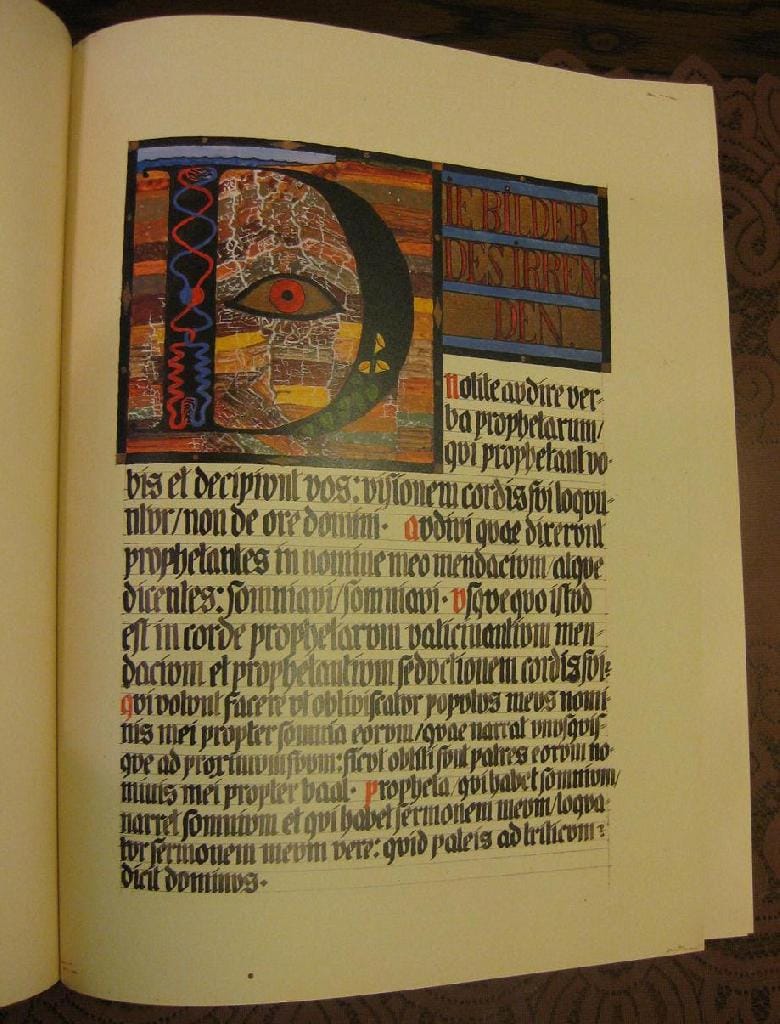 DIE BILDER
DES IRREN
DEN.
nolite audire ver-
ba prophetarum/
qui prophetant vo-
bis et decipiunt vos: visionem cordis sui loquu-
ntur/non de ore domini. audivi quae dixerunt
prophetantes in nomine meo mendacium/atque
dicentes: somniavi/somniavi. usquequo istud
est in corde prophetarum vaticinantium men-
dacium et prophetantium seductionem cordis sui.
qui volunt facere ut obliviscatur populus meus nomi-
nis mei propter somnia eorum/quae narrat unusquis-
que ad proximum suum: sicut obliti sunt patres eorum no-
minis mei propter baal. propheta/qui habet somnium/
narret somnium et qui habet sermonem meum/loqua-
tur sermonem meum vere: quid paleis ad triticum?
dicit dominus.